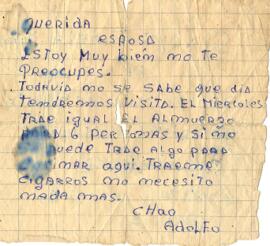 Querida
esposa
Estoy Muy bien no te
Preocupes.
Todavia no se sabe que dia
tendremos visita. El Miercoles
trae igual el almuerzo
para 6 personas y si no
puede trae algo para
aqui. Traeme
cigarros no necesito
nada mas.
Chao
Adolfo